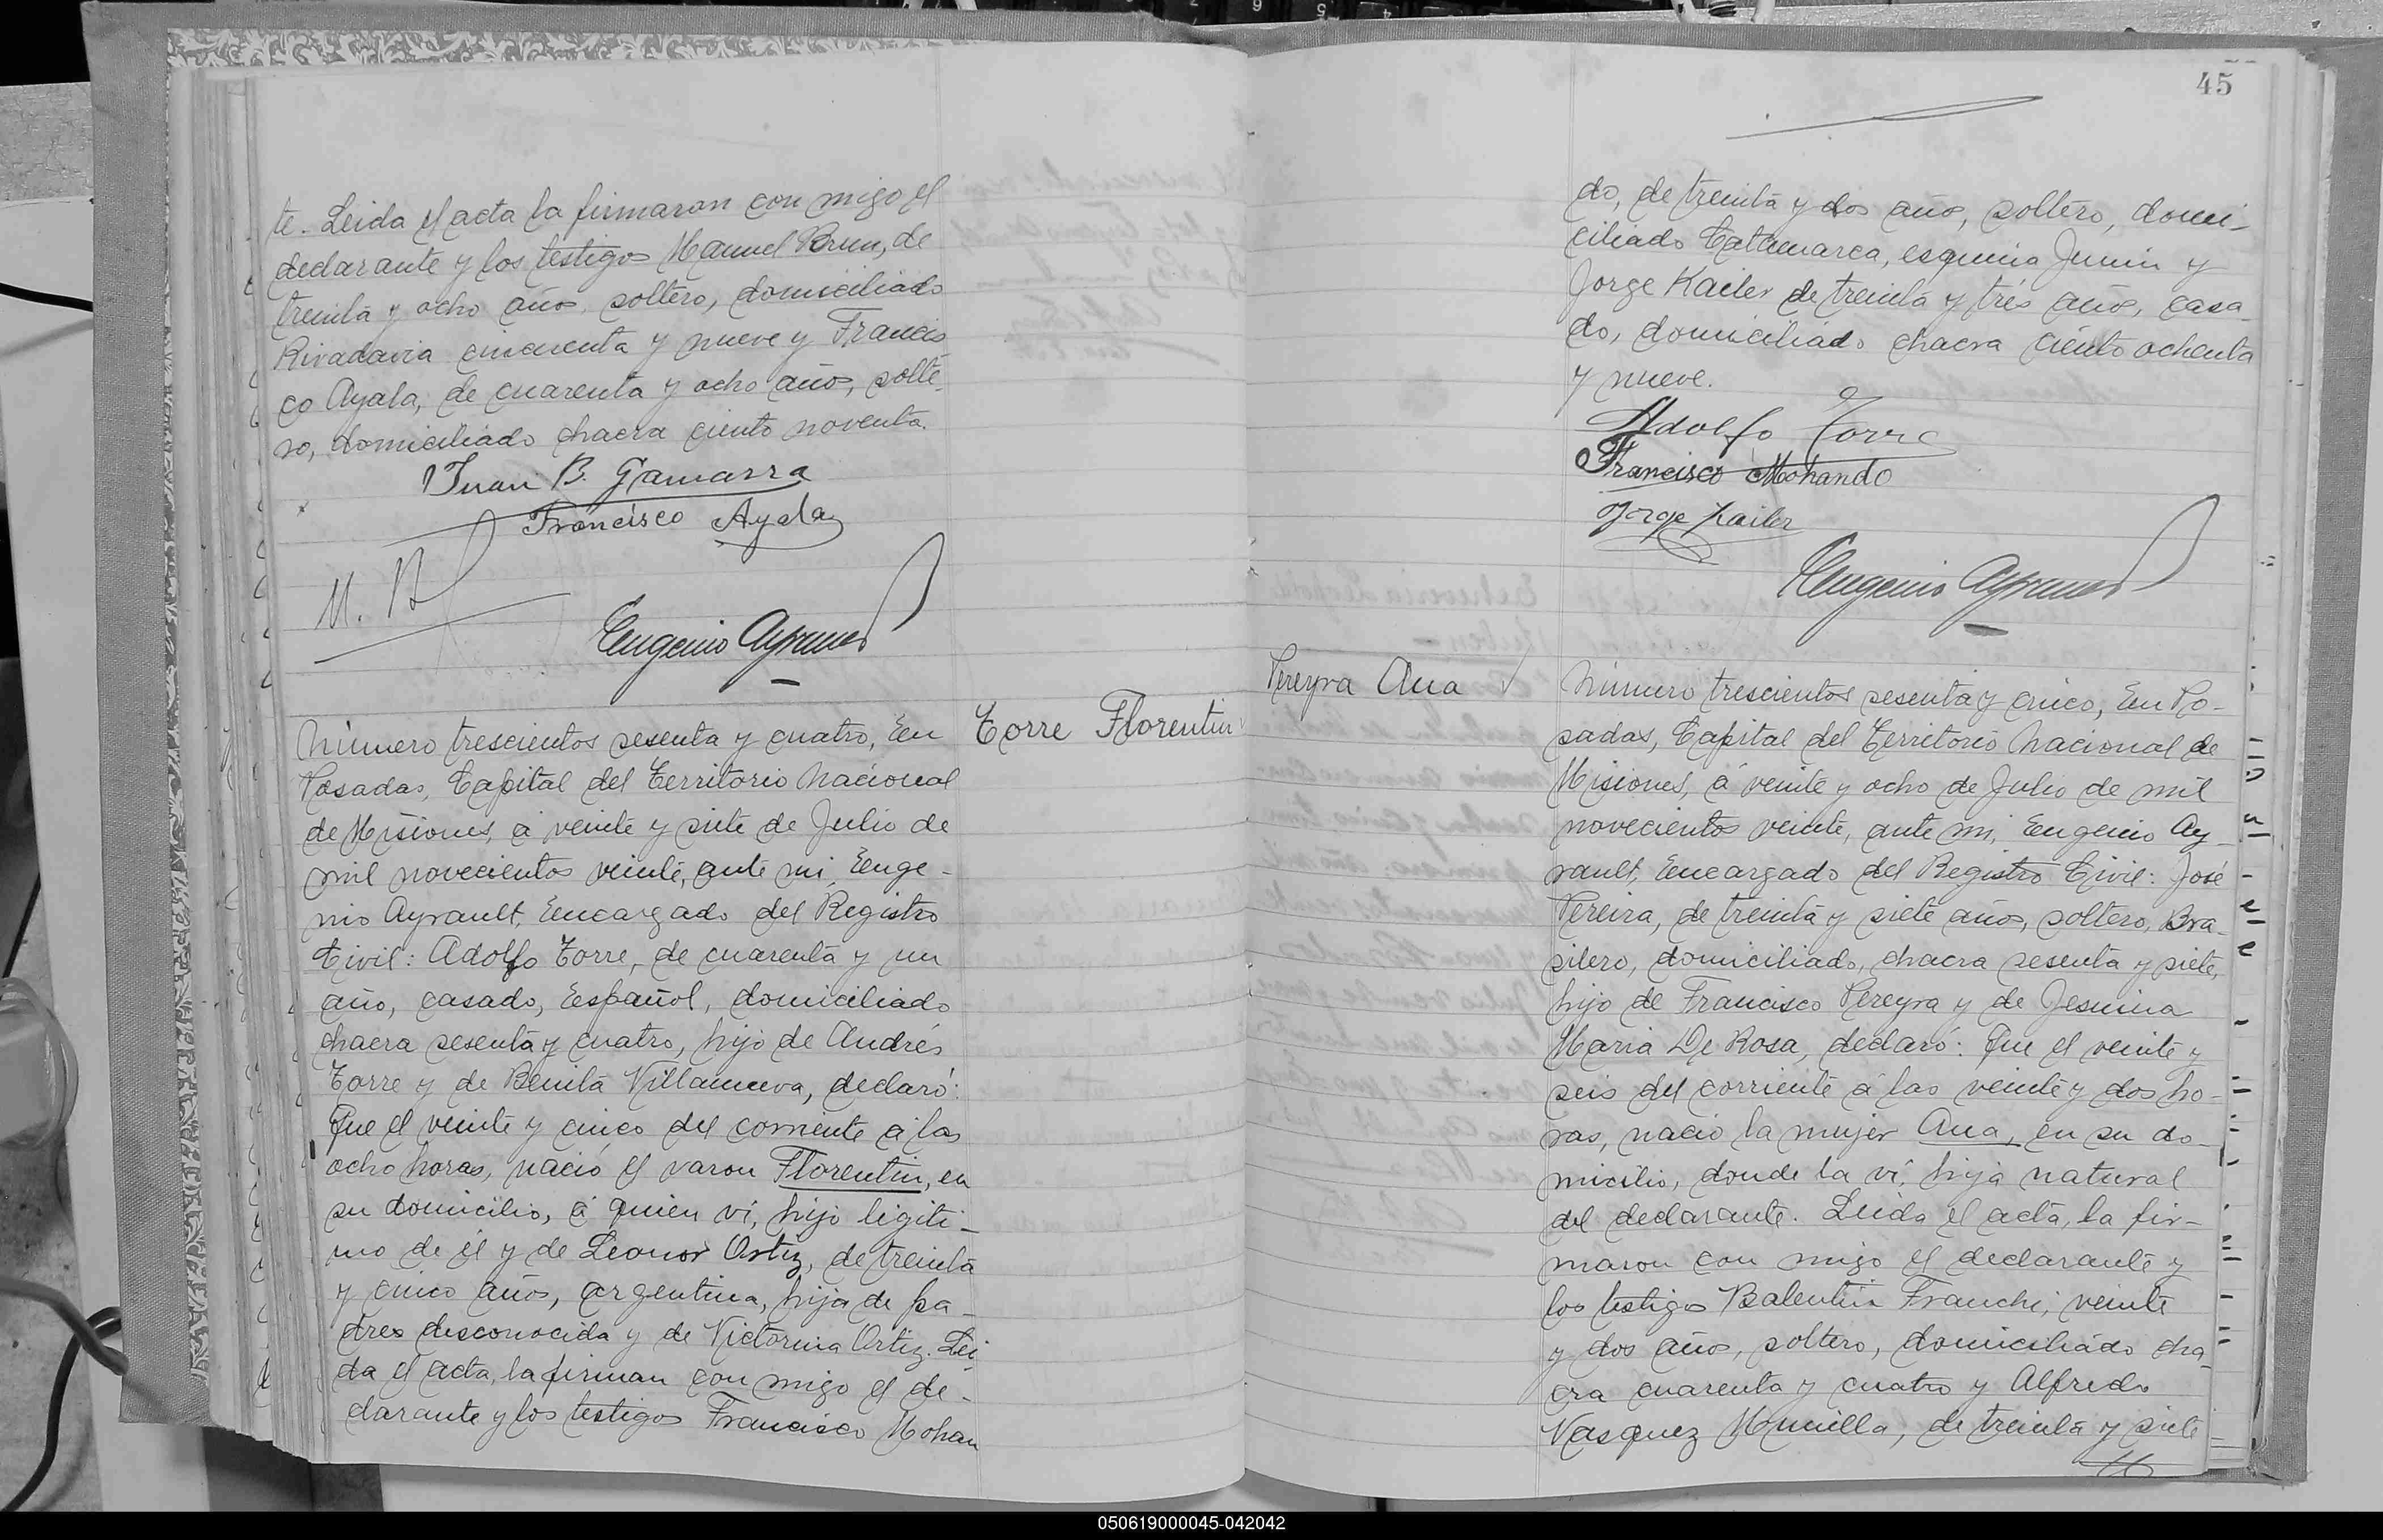 te. Leida el acta la firmaron con migo el
declarante y los testigos Manuel Brun, de
treinta y ocho años, soltero, domiciliado
Rivadavia cincuenta y nueve y Francis
co Ayala, de cuarenta y ocho años, solte-
ro, domiciliado chacra ciento noventa.
Juan B. Gamarra
Francisco Ayala
M. B
Eugenio Ayrault
Torre Florentin
Número trescientos sesenta y cuatro, En
Posadas, Capital del Territorio Nacional
de Misiones, á veinte y siete de Julio de
mil novecientos veinte, ante mi, Euge-
nio Ayrault, Encargado del Registro
Civil: Adolfo Torre, de cuarenta y un
año, casado, Español, domiciliado
chacra sesenta y cuatro, hijo de Andrés
Torre y de Benita Villanueva, declaró:
Que el veinte y cinco del corriente á las
ocho horas, nació el varon Florentin, en
su domicilio, á quien vi, hijo legiti-
mo de él y de Leonor Ortiz, de treinta
y cinco años, argentina, hija de pa-
dres desconocida y de Victorina Ortiz. Lei
da el acta, la firman con migo el de-
clarante y los testigos Francisco Mohan
45
do, de treinta y dos año, soltero, domi-
ciliado Catamarca, esquina Junin y
Jorge Kailer de treinta y trés años, casa-
do, domiciliado chacra ciento ochenta
y nueve.
Adolfo Torre
Francisco Mohando
Jorge Kailer
Eugenio Ayrault
Pereyra Ana
Número trescientos sesenta y cinco, En Po-
sadas, Capital del Territorio Nacional de
Misiones, á veinte y ocho de Julio de mil
novecientos veinte, ante mi, Eugenio Ay-
rault, Encargado del Registro Civil: José
Pereira, de treinta y siete años, soltero, Bra-
silero, domiciliado, chacra sesenta y siete,
hijo de Francisco Pereyra y de Jesuina
Maria De Rosa, declaró: Que el veinte y
seis del corriente á las veinte y dos ho-
ras, nació la mujer Ana, en su do-
micilio, donde la vi, hija natural
del declarante. Leida el acta, la fir-
maron con migo el declarante y
los testigos Balentin Franchi, veinte
y dos años, soltero, domiciliado cha-
cra cuarenta y cuatro y Alfredo
Vasquez Munilla, de treinta y siete
050619000045-042042